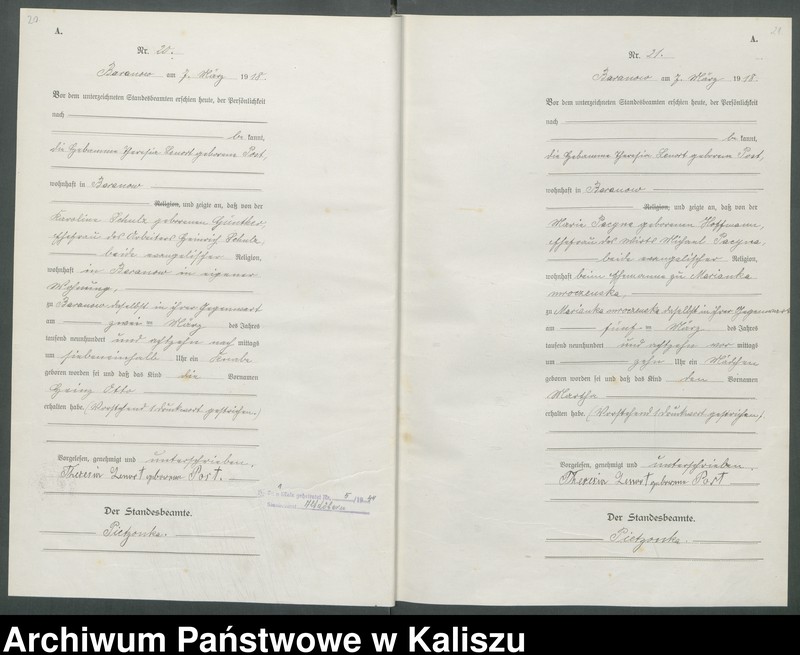 20
A.
Nr. 20.
Baranow am 7. März 1918.
Vor dem unterzeichneten Standesbeamten erschien heute, der Persönlichkeit
nach
be kannt,
die Hebamme Theresia Lenort geborene Post,
wohnhaft in Baranow
Religion, und zeigte an, daß von der
Karoline Schulz geborenen Günther,
Ehefrau des Arbeiters Heinrich Schulz,
beide evangelischer Religion,
wohnhaft in Baranow in eigener
Wohnung,
zu Baranow daselbst in ihrer Gegenwart
am zwei ten März des Jahres
tausend neunhundert und achtzehn nach mittags
um siebeneinhalb Uhr ein Knabe
geboren worden sei und daß das Kind die Vornamen
Heinz Otto
erhalten habe. (Vorstehend 1 Druckwort gestrichen.)
Vorgelesen, genehmigt und unterschrieben.
Theresia Lenort geborene Post.
Der Standesbeamte.
Pietzonka.
21
A.
Nr. 21.
Baranow am 7. März 1918.
Vor dem unterzeichneten Standesbeamten erschien heute, der Persönlichkeit
nach
be kannt,
die Hebamme Theresia Lenort geborene Post,
wohnhaft in Baranow
Religion, und zeigte an, daß von der
Marie Pacyna geborenen Hoffmann,
Ehefrau des Wirts Michael Pacyna,
beide evangelischer Religion,
wohnhaft beim Ehemanne zu Marianka
mroczenska,
zu Marianka mroczenska daselbst in ihrer Gegenwart
am fünf ten März des Jahres
tausend neunhundert und achtzehn vor mittags
um zehn Uhr ein Mädchen
geboren worden sei und daß das Kind den Vornamen
Martha
erhalten habe. (Vorstehend 1 Druckwort gestrichen.)
Vorgelesen, genehmigt und unterschrieben.
Theresia Lenort geborene Post
Der Standesbeamte.
Pietzonka.
Archiwum Państwowe w Kaliszu